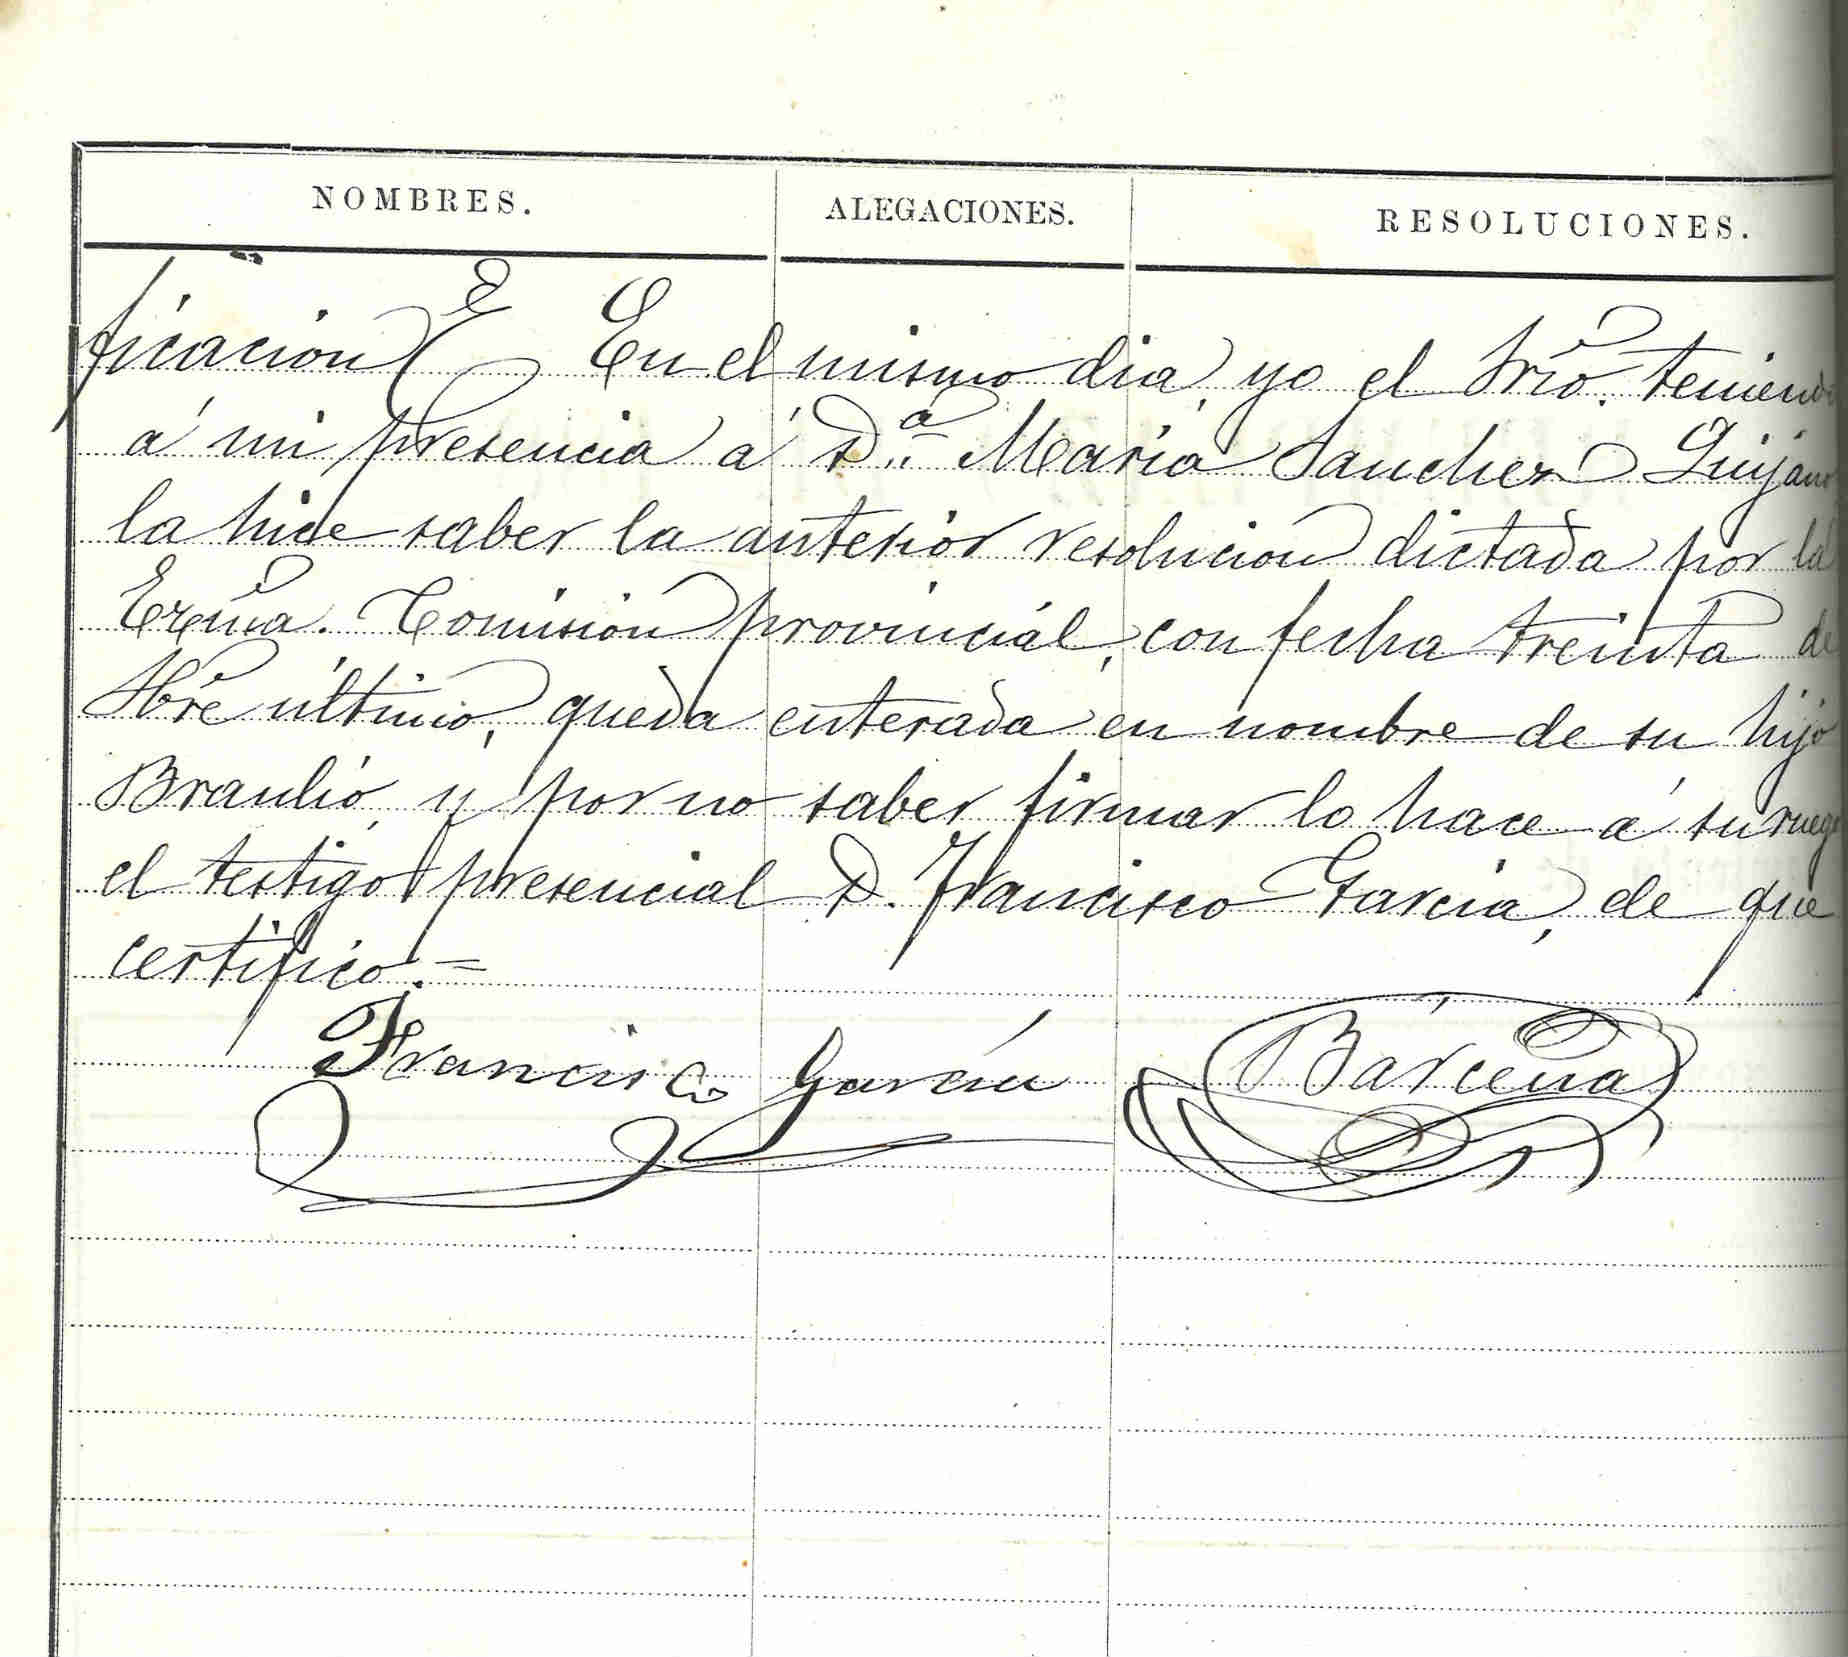 NOMBRES. ALEGACIONES. RESOLUCIONES.
ficación En el mismo dia, yo el Srio. teniendo
á mi presencia á D.ª Maria Sanchez Quijano
la hice saber la anterior resolucion dictada por la
Exma. Comisión provincial, con fecha treinta de
último, queda enterada en nombre de su hijo
Braulio, y por no saber firmar lo hace á su ruego
el testigo presencial D. Francisco Garcia, de que
certifico.=
Francisco García Bárcena